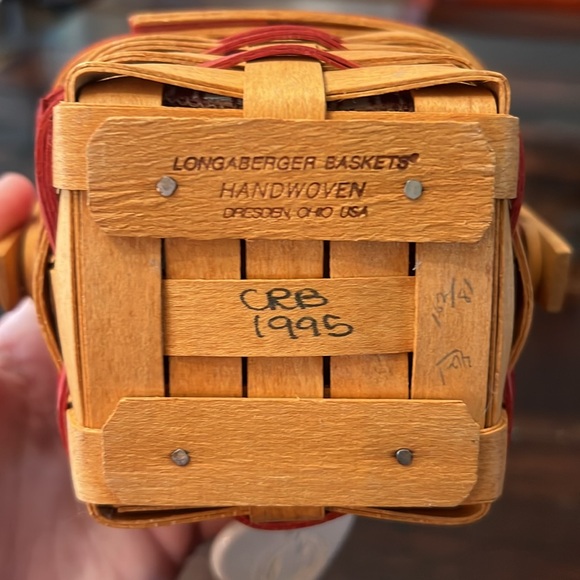 LONGABERGER BASKETS®
HANDWOVEN
DRESDEN, OHIO USA
CRB
1995